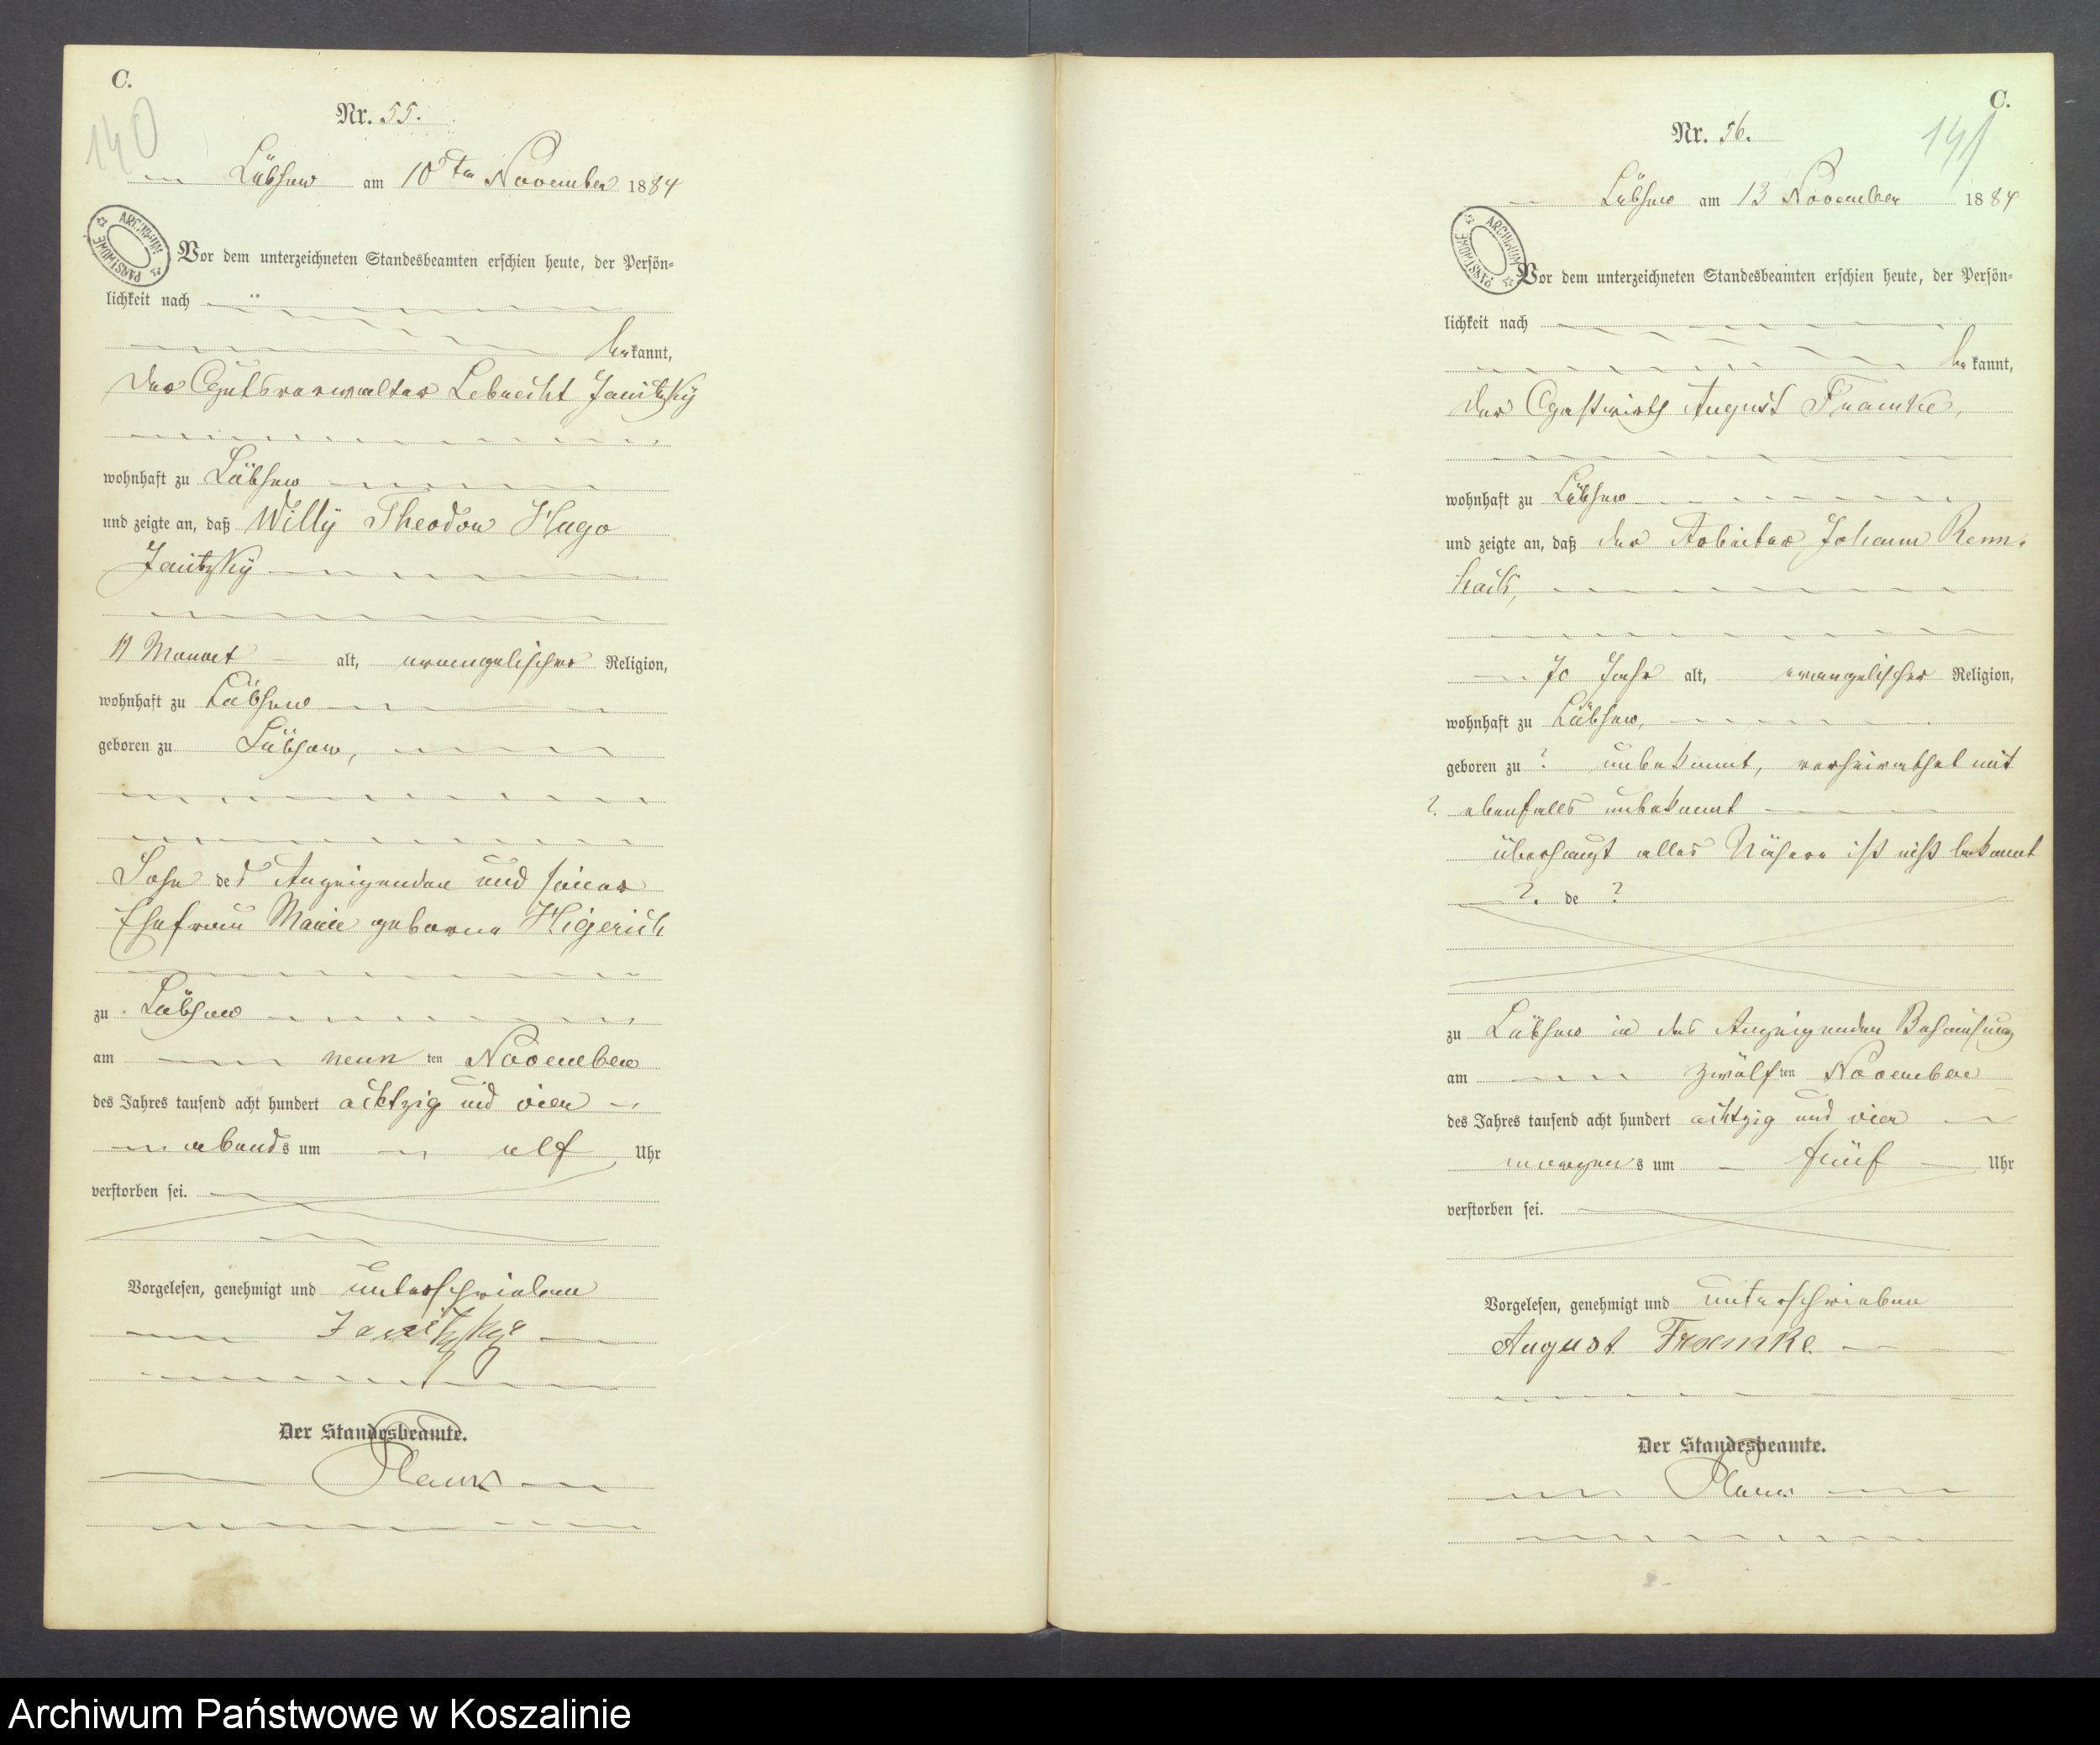 C.
140
Nr. 55.
Lübsow am 10ten November 1884
ARCHIWUM PAŃSTWOWE
Vor dem unterzeichneten Standesbeamten erschien heute, der Persön-
lichkeit nach
bekannt,
der Gutsverwalter Lebrecht Janitzky
wohnhaft zu Lübsow
und zeigte an, daß Willy Theodor Hugo
Janitzky
Monat alt, evangelischer Religion,
wohnhaft zu Lübsow
geboren zu Lübsow,
Sohn des Anzeigenden und seiner
Ehefrau Marie geborne
zu Lübsow
am neunten November
des Jahres tausend acht hundert achtzig und vier
abends um elf Uhr
verstorben sei.
Vorgelesen, genehmigt und unterschrieben
Janitzky
Der Standesbeamte.
C.
141
Nr. 56.
Lübsow am 13 November 1884
ARCHIWUM PAŃSTWOWE
Vor dem unterzeichneten Standesbeamten erschien heute, der Persön-
lichkeit nach
bekannt,
der Gastwirth August Framke,
wohnhaft zu Lübsow
und zeigte an, daß der Arbeiter Johann
70 Jahr alt, evangelischer Religion,
wohnhaft zu Lübsow,
geboren zu ? unbekannt, verheirathet mit
? ebenfalls unbekannt
überhaupt alles Nähere ist nicht bekannt
? de ?
zu Lübsow in des Anzeigenden Behausung
am zwölften November
des Jahres tausend acht hundert achtzig und vier
morgens um fünf Uhr
verstorben sei.
Vorgelesen, genehmigt und unterschrieben
August Framke
Der Standesbeamte.
Archiwum Państwowe w Koszalinie